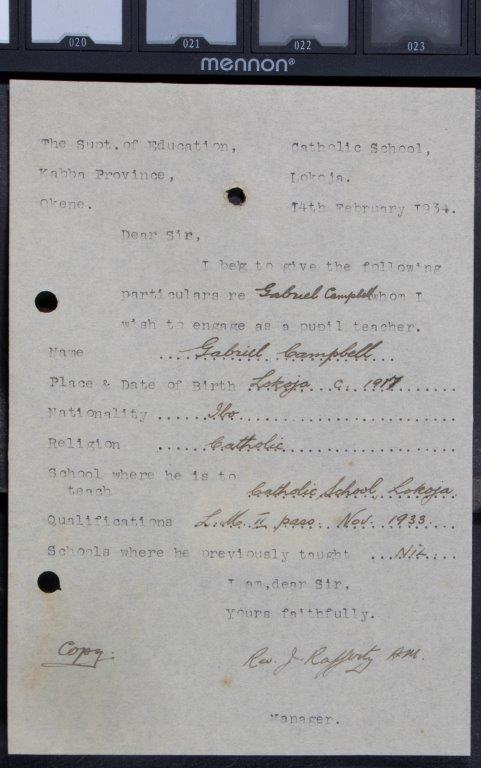 020 021 022 023
mennon®
The Supt. of Education,
Kabba Province,
Okene.
Catholic School,
Lokoja.
14th February 1934.
Dear Sir,
I beg to give the following
particulars re Gabriel Campbell whom I
wish to engage as a pupil teacher.
Name .... Gabriel Campbell ...
Place & Date of Birth Lokoja C. 1917 ......
Nationality ...... Ibo ......
Religion ...... Catholic ......
School where he is to
teach Catholic School, Lokoja.
Qualifications L.M. II pass. Nov. 1933 ...
Schools where he previously taught ... Nil ...
I am, dear Sir,
Yours faithfully.
Copy.
Rev. J. Rafferty
Manager.